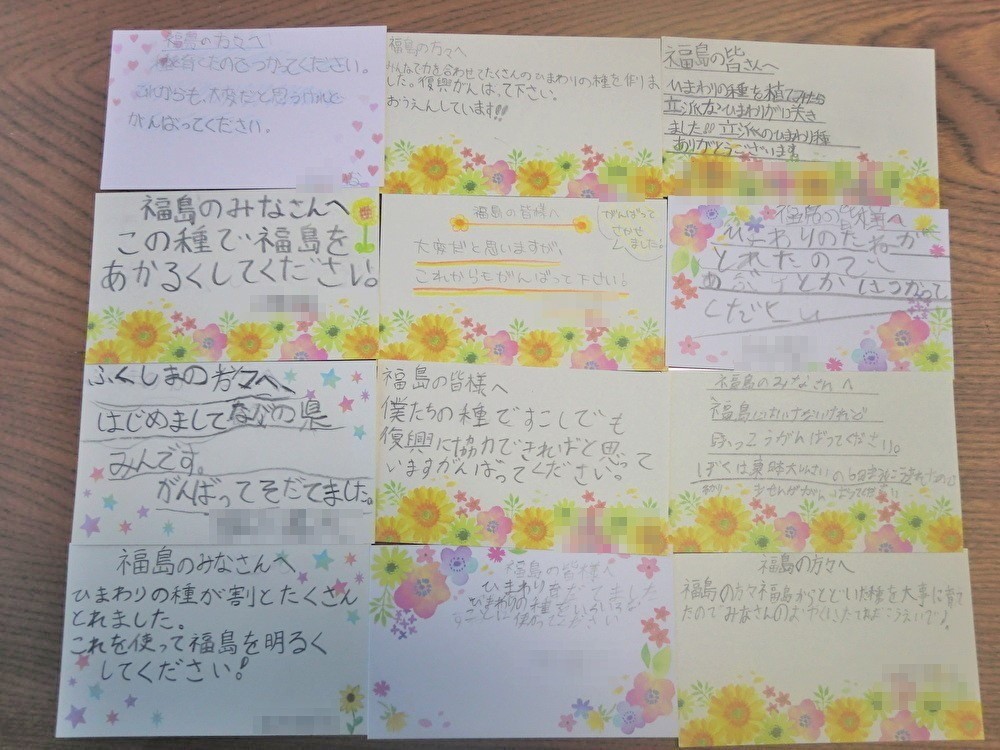 福島の方々へ
のでつかってください。
これからも、大変だと思うけれど
がんばってください。
福島の方々へ
みんなで力を合わせてたくさんのひまわりの種を作りま
した。復興がんばって下さい。
おうえんしています!!
福島の皆さんへ
ひまわりの種を植てみたら
立派なひまわりがり咲き
ました!!立派のひまわり種
ありがとうございます
福島のみなさんへ
この種で福島を
あかるくしてください!
福島の皆様へ
大変だと思いますが、
これからもがんばって下さい!
がんばって
さかせ
ました!
福島の皆様へ
ひまわりのたねが
とれたので
つかって
ください
ふくしまの方々へ、
はじめまして の県
みんです。
がんばってそだてました。
福島の皆様へ
僕たちの種ですこしでも
復興に協力できればと思って
いますがんばってください。
福島のみなさんへ
福島にはいけないけれど
ふっこうがんばってください。
ぼくは東日本大しんさいの
福島のみなさんへ
ひまわりの種が割とたくさん
とれました。
これを使って福島を明るく
してください!
福島の皆様へ
ひまわりをそだてました
ひまわりの種をいろいろな
ことに使ってください
福島の方々へ
福島の方々福島からとどいた種を大事に育て
たのでみなさんのおやくにたてればこうえいです。